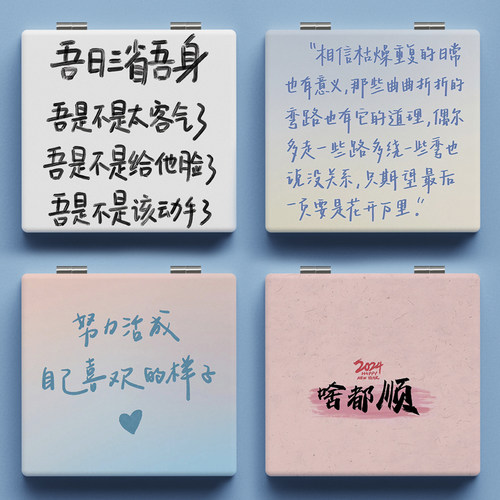 吾日三省吾身
吾是不是太客气了
吾是不是给他脸了
吾是不是该动手了
“相信枯燥重复的日常
也有意义，那些曲曲折折的
弯路也有它的道理，偶尔
多走一些路多绕一些弯也
说没关系，只期望最后
一页要是花开万里。”
努力活成
自己喜欢的样子
2024
HAPPY
NEW YEAR
啥都顺